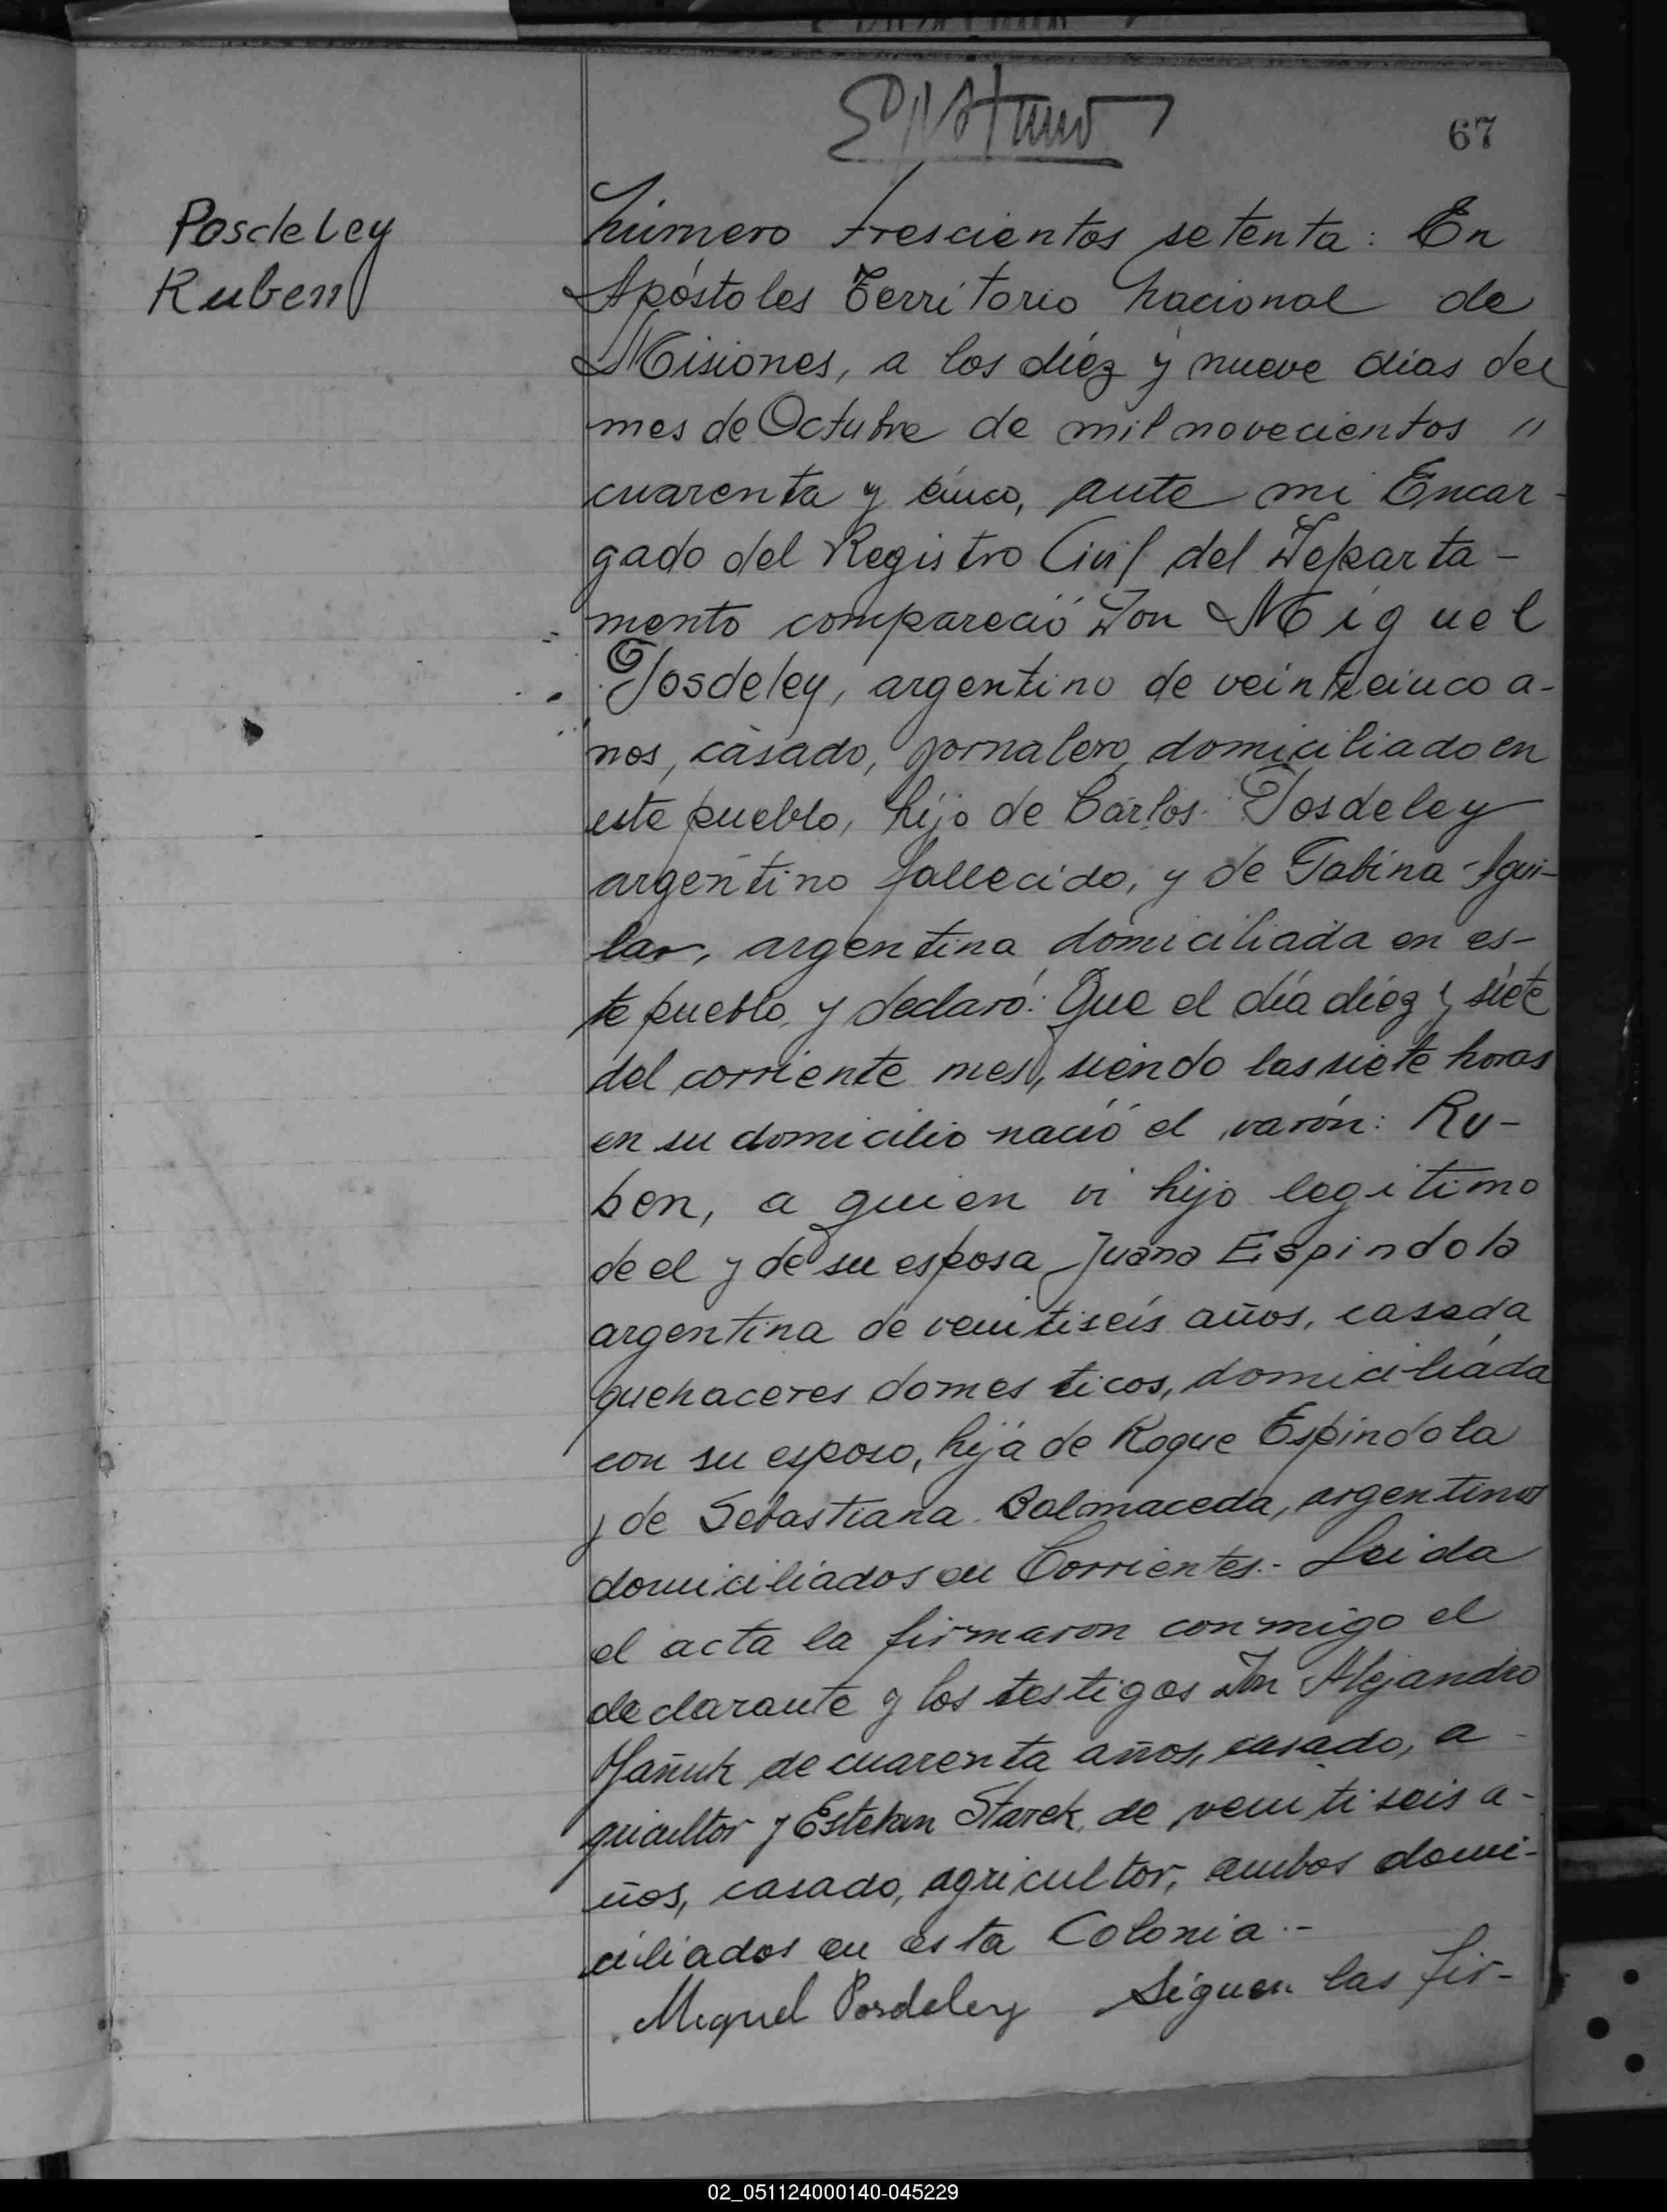 67
Posdeley
Ruben
Número trescientos setenta: En
Apóstoles Territorio Nacional de
Misiones, a los diéz y nueve dias del
mes de Octubre de mil novecientos "
cuarenta y cinco, ante mi Encar-
gado del Registro Civil del Departa-
mento compareció Don Miguel
Posdeley, argentino de veinticinco a-
nos, casado, jornalero, domiciliado en
este pueblo, hijo de Carlos Posdeley
argentino fallecido, y de Sabina Agui-
lar, argentina domiciliada en es-
te pueblo, y declaró: Que el día diéz y siete
del corriente mes, siendo las siete horas
en su domicilio nació el varón: Ru-
ben, a quien vi hijo legitimo
de el y de su esposa Juana Espindola
argentina de veintiseis años, casada
quehaceres domesticos, domiciliada
con su esposo, hija de Roque Espindola
y de Sebastiana Balmaceda, argentinos
domiciliados en Corrientes.- Leida
el acta la firmaron conmigo el
declarante y los testigos Don Alejandro
de cuarenta años, casado, a-
gricultor y Esteban Starek, de veintiseis a-
ños, casado, agricultor, ambos domi-
ciliados en esta Colonia.-
Miguel Posdeley Siguen las fir-
02_051124000140-045229